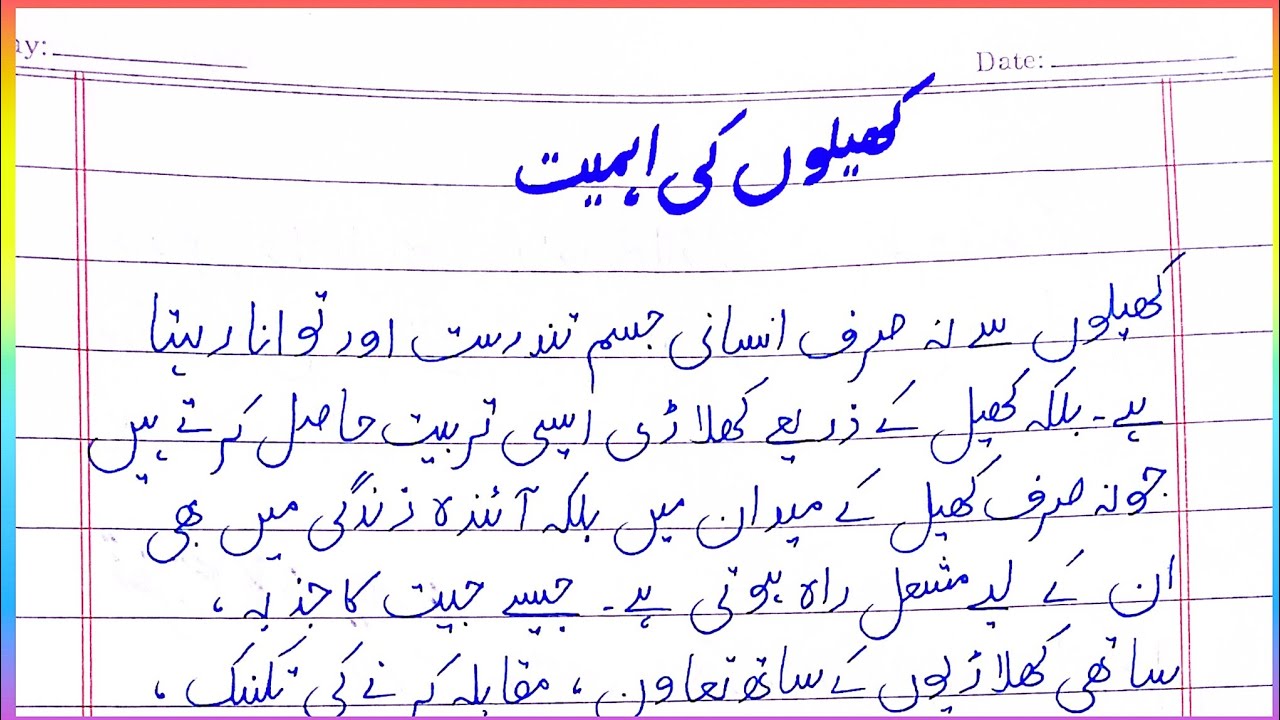 ay:
Date:
کھیلوں کی اہمیت
کھیلوں سے نہ صرف انسانی جسم تندرست اور توانا رہتا
ہے۔ بلکہ کھیل کے ذریعے کھلاڑی ایسی تربیت حاصل کرتے ہیں
جو نہ صرف کھیل کے میدان میں بلکہ آئندہ زندگی میں بھی
ان کے لیے مشعل راہ ہوتی ہے۔ جیسے جیت کا جذبہ،
ساتھی کھلاڑیوں کے ساتھ تعاون، مقابلہ کرنے کی تکنیک،